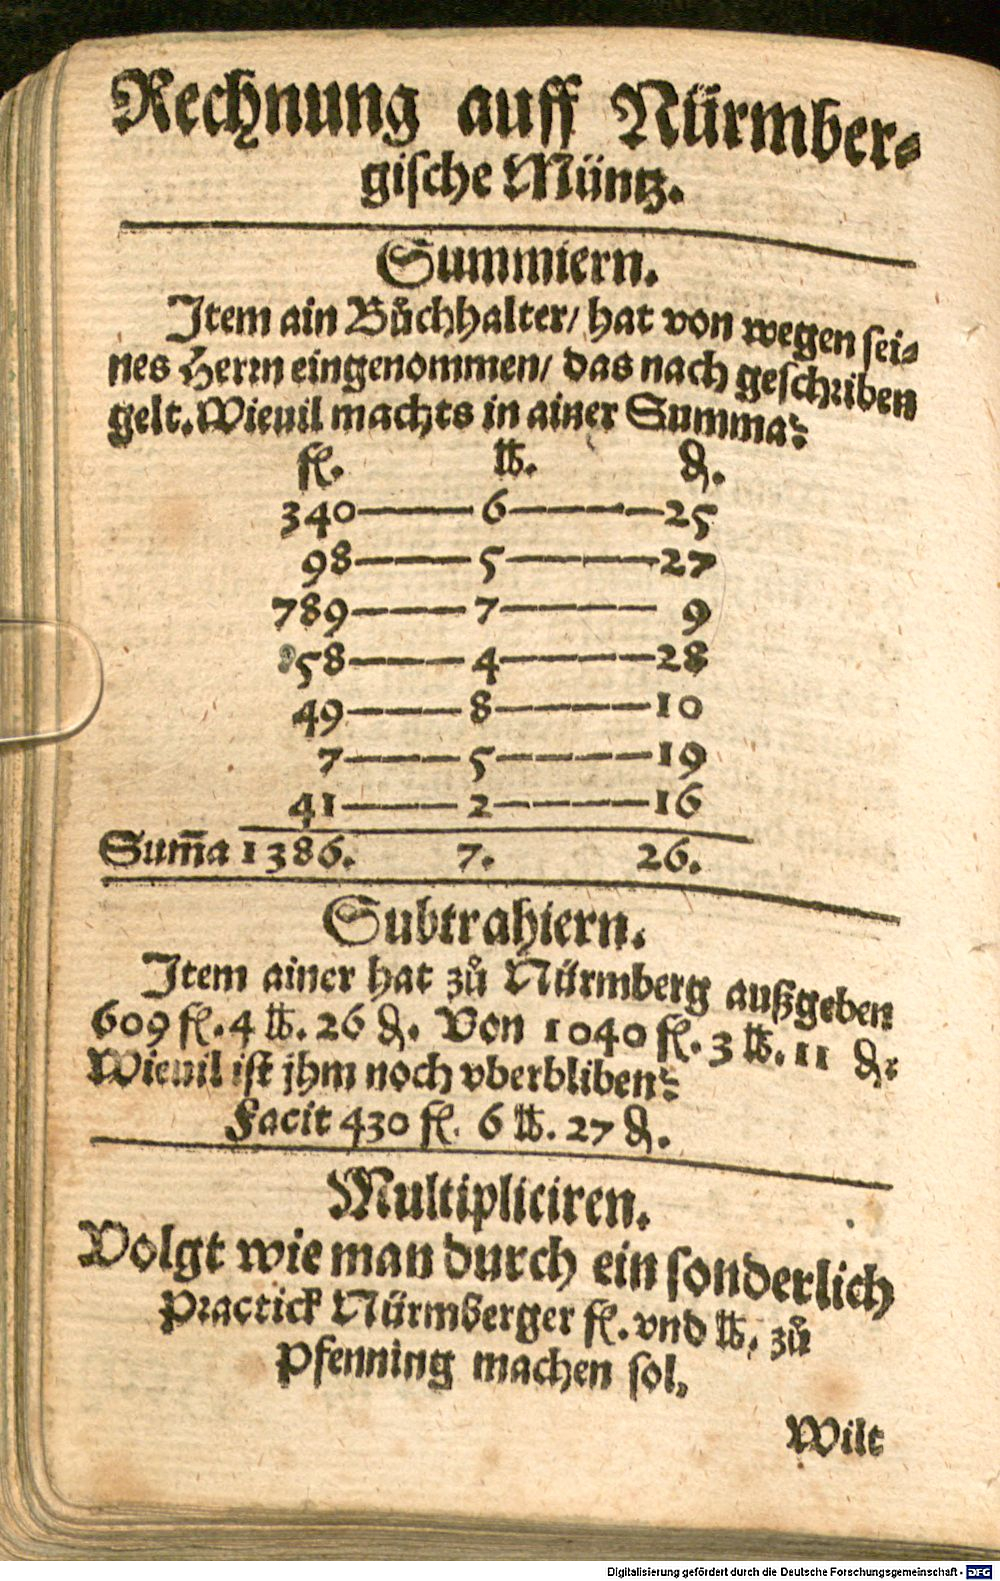 Rechnung auff Nürmber-
gische Müntz.
Summiern.
Item ain Bůchhalter/ hat von wegen sei-
nes Herrn eingenommen/ das nach geschriben
gelt. Wieuil machts in ainer Summa?
fl. lb. ₰.
340 — 6 — 25
98 — 5 — 27
789 — 7 — 9
58 — 4 — 28
49 — 8 — 10
7 — 5 — 19
41 — 2 — 16
Sum̄a 1386. 7. 26.
Subtrahiern.
Item ainer hat zů Nürmberg außgeben
609 fl. 4 lb. 26 ₰. Von 1040 fl. 3 lb. 11 ₰:
Wieuil ist jhm noch vberbliben?
Facit 430 fl. 6 lb. 27 ₰.
Multipliciren.
Volgt wie man durch ein sonderlich
Practick Nürmberger fl. vnd lb. zů
Pfenning machen sol.
Wilt
Digitalisierung gefördert durch die Deutsche Forschungsgemeinschaft - DFG